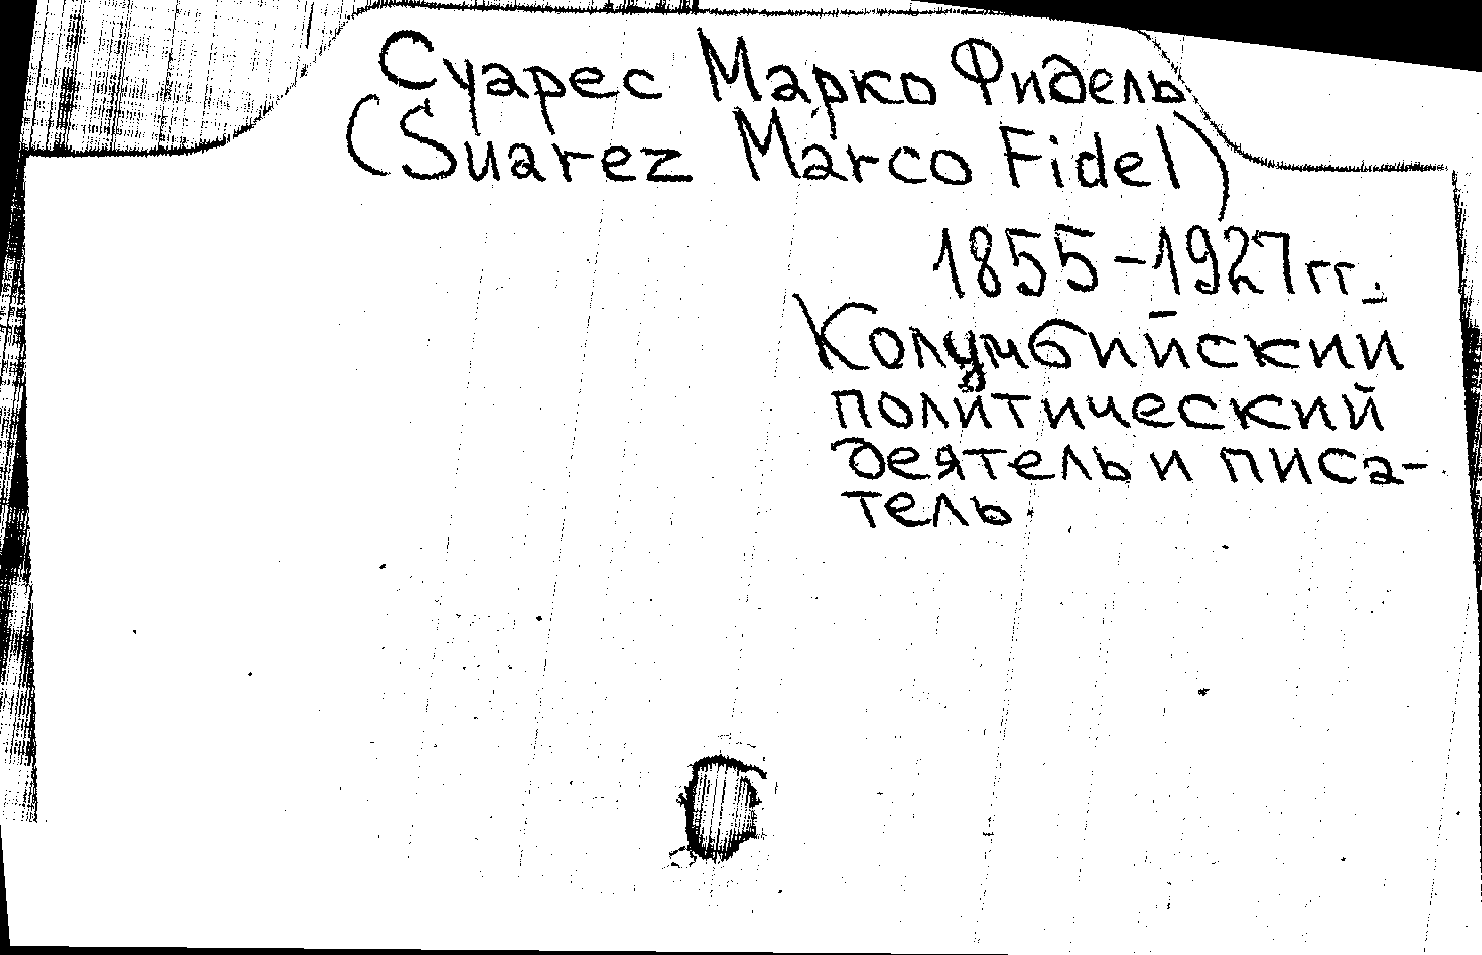 Суарес Марко Фидель
(Suarez Marco Fidel)
1855-1927гг.
Колумбийский
политический
деятель и писа-
тель